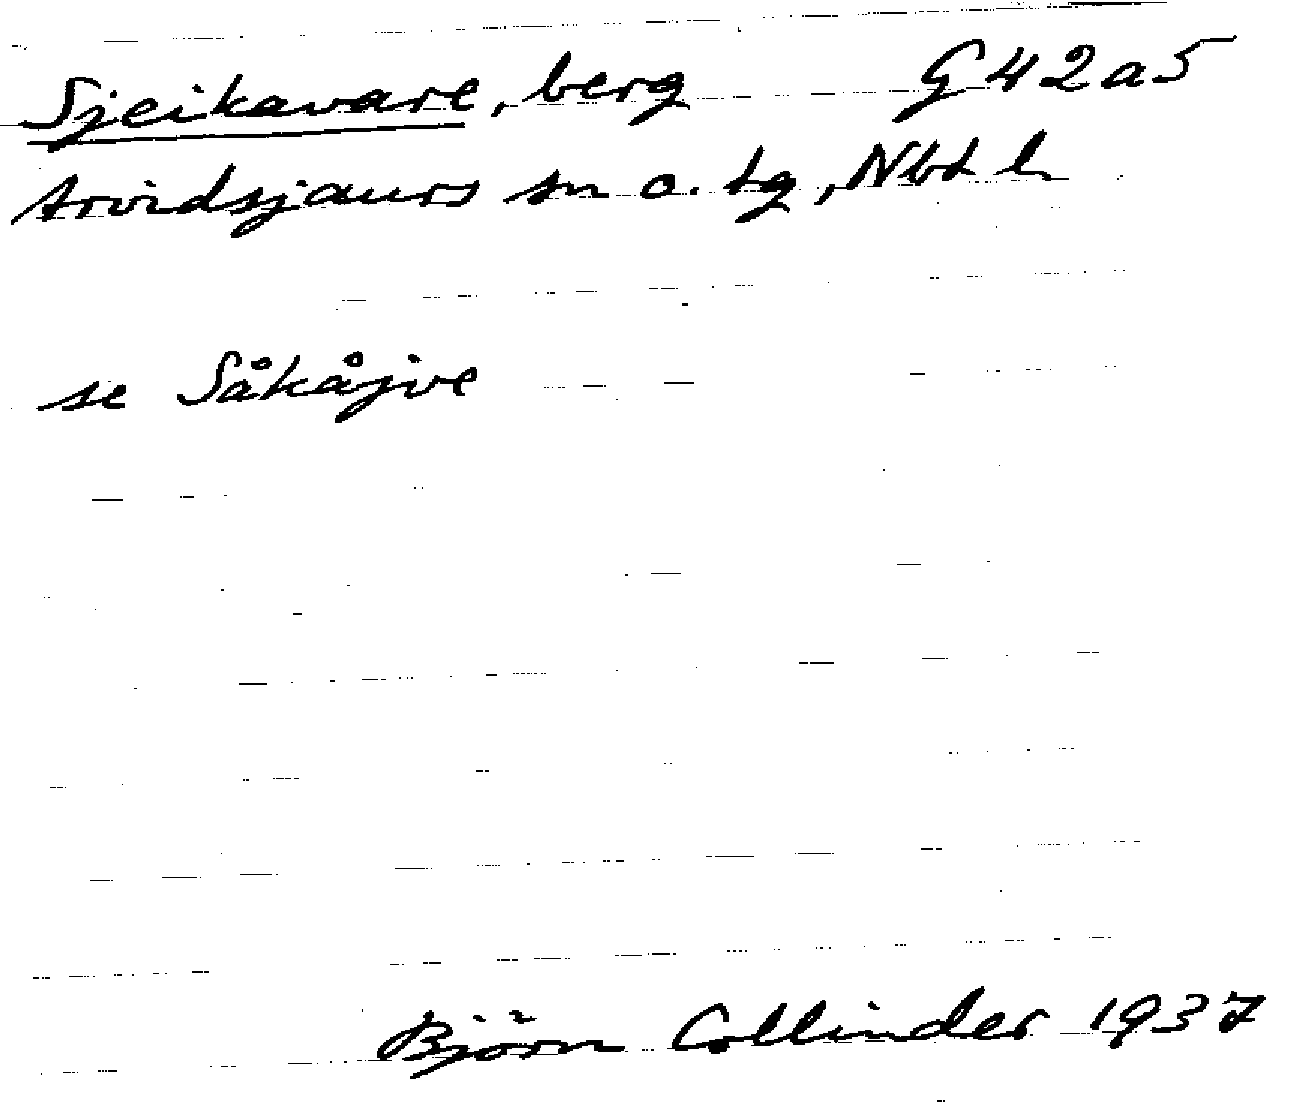 Sjeikavare, berg G42a5
Arvidsjaurs sn o. tg, Nbt l
se Såkåjve
Björn Collinder 1937